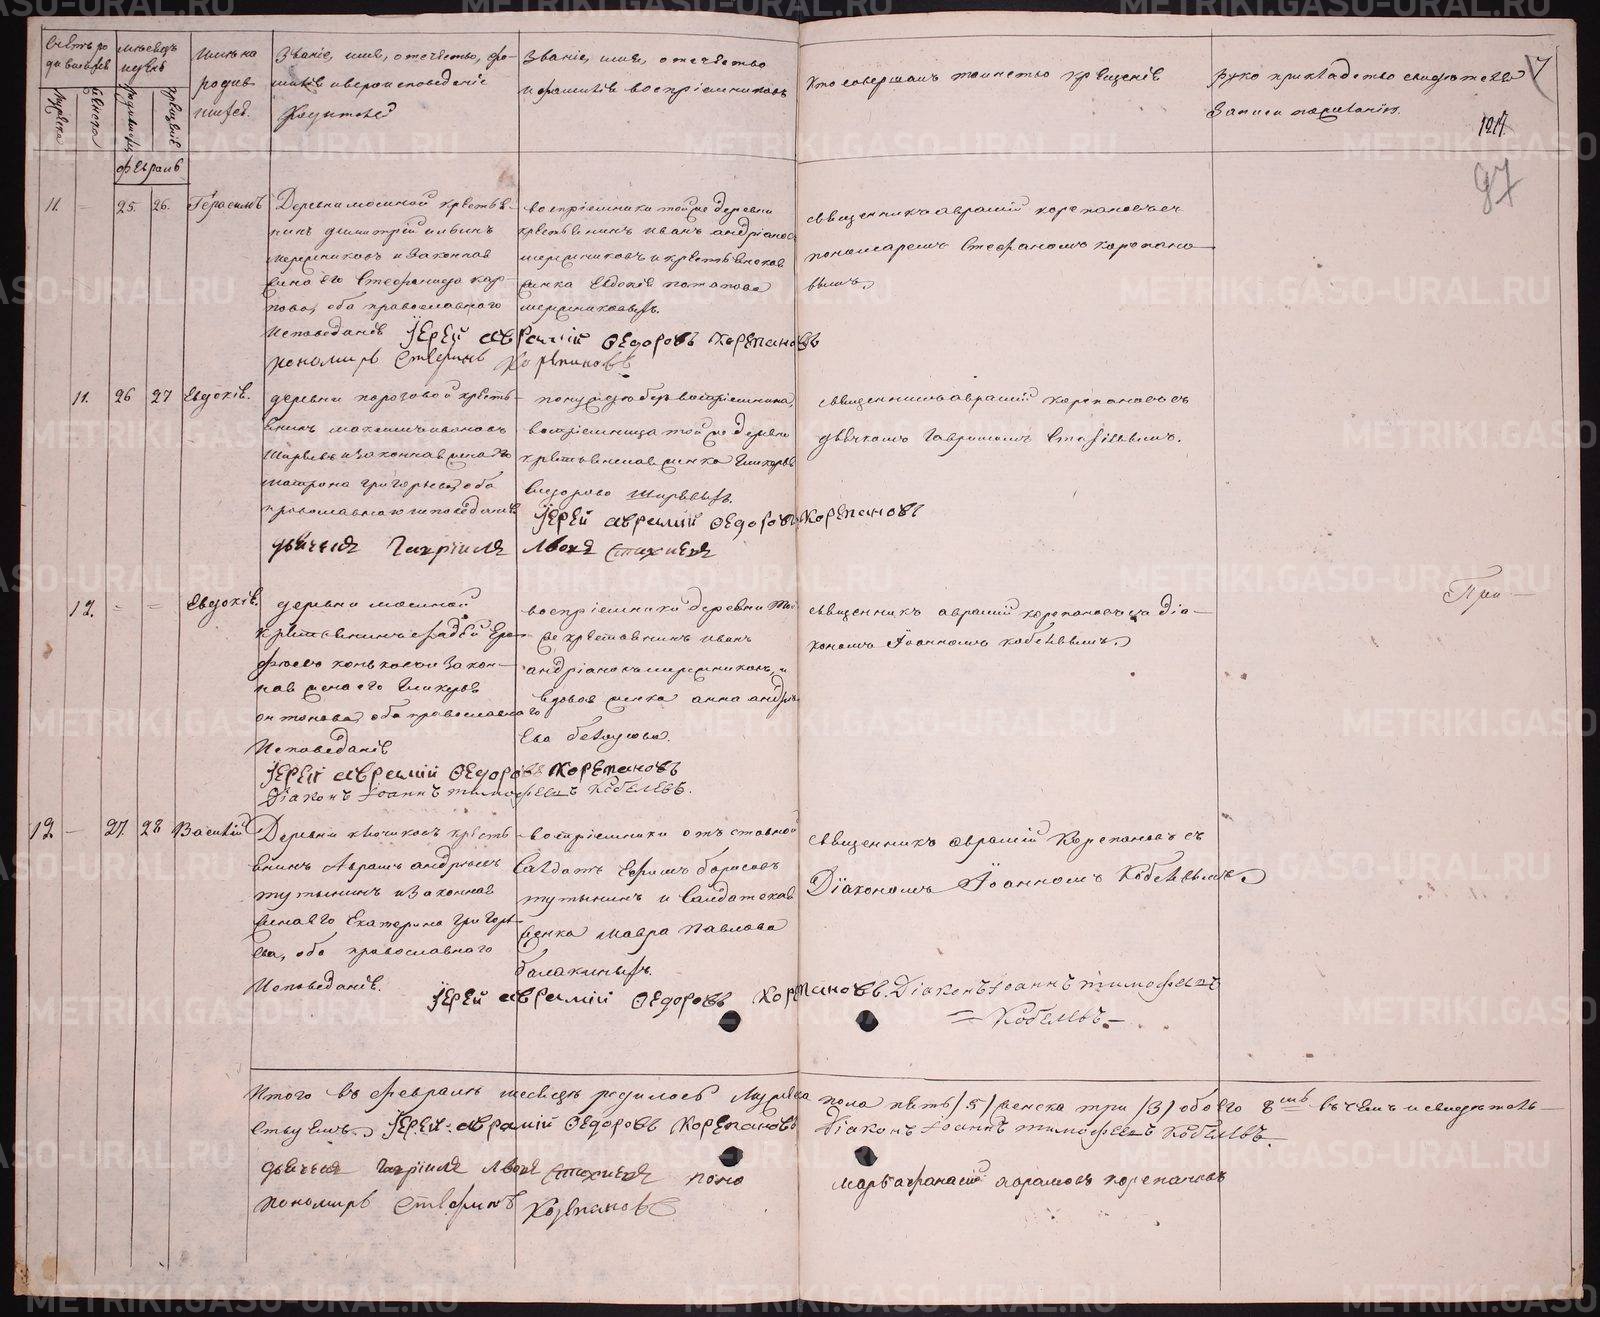 Счетъ ро
дившихся
Мѣсяцъ
и день
Имѣна
родив
шихся.
Званіе, имя, отечество, фа-
милія и вероисповеданіе
Родителей
Званіе, имя, отечество
и фамилія воспріемниковъ
Кто совершалъ таинство крещенія
Рукоприкладство свидетелей
записи по желанію.
Мужеска
Женска
рожденія
крещенія
февраль
97
11. — 25. 26. Герасимъ
Деревни мосиной крестья-
нинъ димитрій ильинъ
и законная
жена его Стефанида кар-
пова, оба православнаго
Исповеданія
воспріемники той же деревни
крестьянинъ иванъ андріановъ
и крестьянская
жинка Евдокія потапова
священникъ аврамій корепановъ съ
пономаремъ Стефаномъ корепано-
вымъ
Іерей аврамій Ѳедоровъ Корепановъ
пономарь Стефанъ Корепановъ.
11. 26 27 Евдокія.
деревни пороговой кресть-
янинъ максимъ ивановъ
и законная жена его
матрона григорьева, оба
православнаго исповеданія
воспріемница той же деревни
крестьянская жинка Гликерья
священникъ аврамій корепановъ съ
дьячкомъ Гавріиломъ Стахіевымъ.
Іерей аврамій Ѳедоровъ Корепановъ
дьячекъ Гавріилъ Львовъ Стахиевъ
12. = = Евдокія.
деревни мосиной
крестьянинъ фадѣй
и закон-
ная жена его Гликерья
антонова, оба православнаго
Исповеданія
воспріемники деревни той
же крестьянинъ иванъ
андріановъ и
вдовая жинка анна андре-
ева
священникъ аврамій корепановъ съ діа-
кономъ Іоанномъ кобелевымъ
При —
Іерей аврамій Ѳедоровъ Корепановъ
Діаконъ Іоаннъ тимофеевъ Кобелевъ.
12 — 27. 28 Василій
Деревни кресть-
янинъ Аврамъ андреевъ
тутынинъ и законная
жена его Екатерина григорь-
ева, оба православнаго
Исповеданія.
воспріемники отставной
Салдатъ Ефимъ борисовъ
тутынинъ и Салдатская
жинка Мавра Павлова
балакиныхъ.
священникъ аврамій Корепановъ съ
Діакономъ Іоанномъ Кобелевымъ
Іерей аврамій Ѳедоровъ Корепановъ. Діаконъ Іоаннъ тимофеевъ
= Кобелевъ. —
Итого въ феврале месяце родилось Мужеска пола пять /5/ женска три /3/ обоего 8мь въ чемъ и свидетель-
ствуемъ Іерей аврамій Ѳедоровъ Корепановъ Діаконъ Іоаннъ тимофеевъ Кобелевъ.
дьячекъ Гавріилъ Львовъ Стахиевъ поно марь афанасій аврамовъ корепановъ
пономарь Стефанъ Корепановъ
METRIKI.GASO-URAL.RU